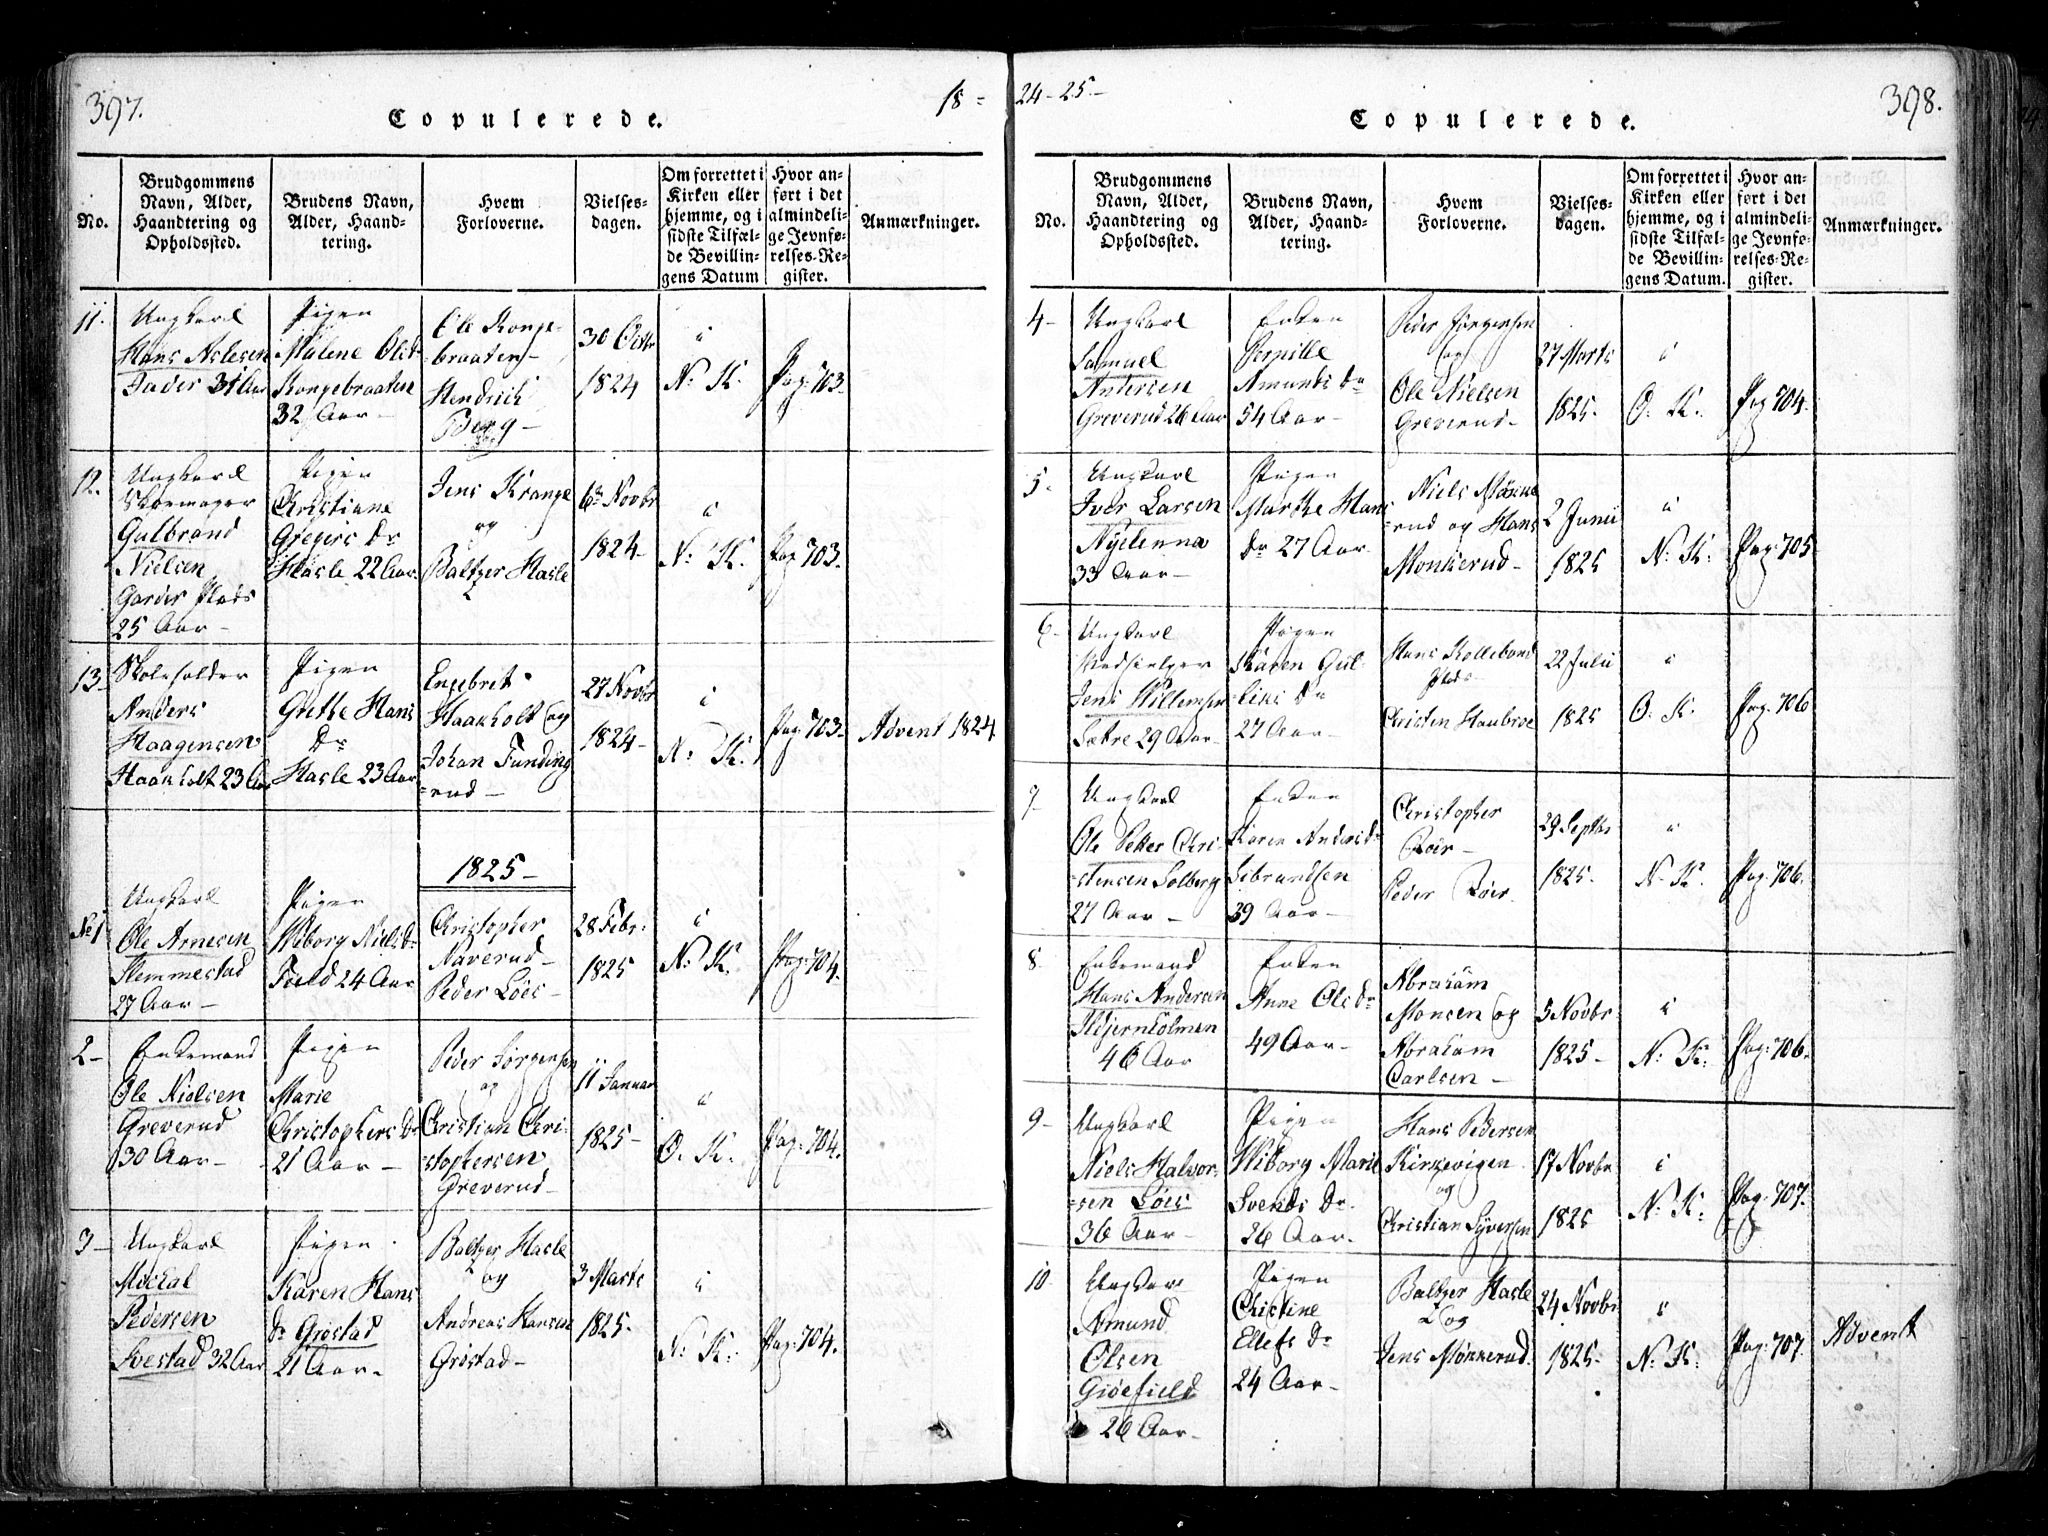 397.
18 =
Copulerede.
No.
Brudgommens
Navn, Alder,
Haandtering og
Opholdssted.
Brudens Navn,
Alder, Haand-
tering.
Hvem
Forloverne.
Vielses-
dagen.
Om forrettet i
Kirken eller
hjemme, og i
sidste Tilfæl-
de Bevillin-
gens Datum
Hvor an-
ført i det
almindeli-
ge Jevnfø-
relses-Re-
gister.
Anmærkninger.
11.
Ungkarl
Hans Aslesen
31 Aar
Pigen
Malene Olsd
Kongebraaten
32 Aar -
Ole Konge-
braaten -
Hendrich
Berg -
30 Octbr
1824
i
N: K.
Pag: 703.
12.
Ungkarl
Skomager
Gulbrand
Nielsen
Garder Plads
25 Aar -
Pigen
Christiane
Gregers Dr
Hasle 22 Aar.
Jens Krange
og
Baltzer Hasle
6te Novbr
1824
i
N: K.
Pag 703.
13
Skoleholder
Anders
Haagensen
Haakholt 23 Aar
Pigen
Grethe Hans
Dr
Hasle 23 Aar
Engebret
Haakholt og
Johan Tunding
=rud -
27 Novbr
1824 -
i
N: K.
Pag: 703.
Advent 1824
1825 -
No 1
Ungkarl
Ole Arnesen
Slemmestad
27 Aar -
Pigen
Wiborg Niels Dr
Field 24 Aar
Christopher
Naverud -
Peder Löes -
28 Febr:
1825
i
N: K.
Pag: 704.
2 -
Enkemand
Ole Nielsen
Greverud
30 Aar -
Pigen
Marie
Christophers Dr
21 Aar -
Peder Jörgensen
og
Christian Chri-
stophersen
Greverud -
11 Januar
1825 -
i
O. K.
Pag: 704.
3 -
Ungkarl
Michal
Pedersen
Svestad 32 Aar
Pigen
Karen Hans
Dr Gröstad
21 Aar -
Baltzer Hasle
og
Andreas Hansen
Gröstad -
3 Marts
1825 -
i
N: K:
Pag: 704.
24 - 25 -
398.
Copulerede.
No.
Brudgommens
Navn, Alder,
Haandtering og
Opholdssted.
Brudens Navn,
Alder, Haand-
tering.
Hvem
Forloverne.
Vielses-
dagen.
Om forrettet i
Kirken eller
hjemme, og i
sidste Tilfæl-
de Bevillin-
gens Datum.
Hvor an-
ført i det
almindeli-
ge Jevnfø-
relses-Re-
gister.
Anmærkninger.
4 -
Ungkarl
Samuel
Andersen
Greverud 26 Aar
Enken
Pernille
Amunds Dr
54 Aar -
Peder Jörgensen
og
Ole Nielsen
Greverud -
27 Marts
1825 -
i
O. K.
Pag 704.
5 -
Ungkarl
Iver Larsen
Nyelenna
33 Aar -
Pigen
Marthe Hans
Dr 27 Aar
Niels Mönke
=rud og Hans
Monkerud -
2 Junii
1825
i
N: K:
Pag: 705
6 -
Ungkarl
Jens Willemsen
Sætre 29 Aar -
Pigen
Karen Gul-
Dr
27 Aar -
Hans Kollebond
plads
Christen Haubroe
22 Julii
1825
i
O. K.
Pag. 706
7
Ungkarl
Ole Peter Chri-
stensen Solberg
27 Aar -
Enken
Karen Anders Dr
Gibrandsen
39 Aar -
Christopher
Röer -
Peder Röer
29 Septbr
1825.
i
N. K.
Pag: 706.
8
Enkemand
Hans Andersen
Stjernholmen
46 Aar
Enken
Anne Ols Dr
49 Aar -
Abraham
Monsen og
Abraham
Carlsen -
5 Novbr
1825 -
i
N. K:
Pag: 706.
9 -
Ungkarl
Niels Halvor-
=sen Löes
36 Aar -
Pigen
Wiborg Marie
Svends Dr.
26 Aar.
Hans Pedersen
Kirkevigen
og
Christian Syversen
17 Novbr
1825
i
N. K:
Pag: 707.
10
Ungkarl
Amund
Olsen
Giöefield
26 Aar -
Pigen
Christine
Ellefs Dr
24 Aar -
Baltzer Hasle
og
Jens Mönkerud.
24 Novbr
1825 -
i
N: K:
Pag: 707.
Advent